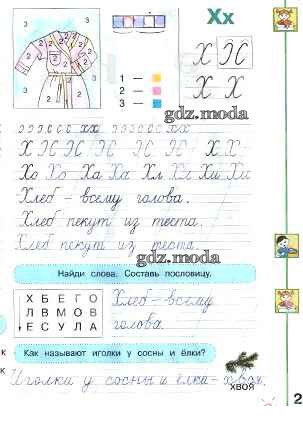 Хх
3 2 3
2 2 2 2
1 —
2 —
3 —
gdz.moda
Х Х
Х Х
gdz.moda
Хо Хо Ха Ха Хл Хл Хи Хи
Хлеб – всему голова.
Хлеб пекут из теста.
Хлеб пекут из теста.
gdz.moda
Найди слова. Составь пословицу.
Х Б Е Г О
Л В М О В
Е С У Л А
Хлеб – всему
голова.
Как называют иголки у сосны и ёлки?
Иголки у сосны и ёлки – хвоя.
ХВОЯ
2